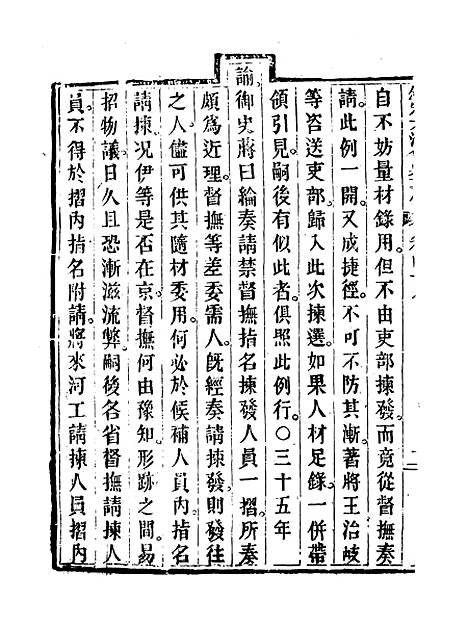 自不妨量材錄用。但不由吏部揀發。而竟從督撫奏
請。此例一開。又成捷徑。不可不防其漸。著將王治岐
等咨送吏部。歸入此次揀選。如果人材足錄。一併帶
領引見。嗣後有似此者。俱照此例行。〇三十五年
諭。御史蔣曰綸奏請禁督撫指名揀發人員一摺。所奏
頗為近理。督撫等差委需人。旣經奏請揀發。則發往
之人。儘可供其隨材委用。何必於候補人員內。指名
請揀。况伊等是否在京。督撫何由豫知。形跡之間。易
招物議。日久且恐漸滋流弊。嗣後各省督撫請揀人
員。不得於摺內指名附請。將來河工請揀人員摺內